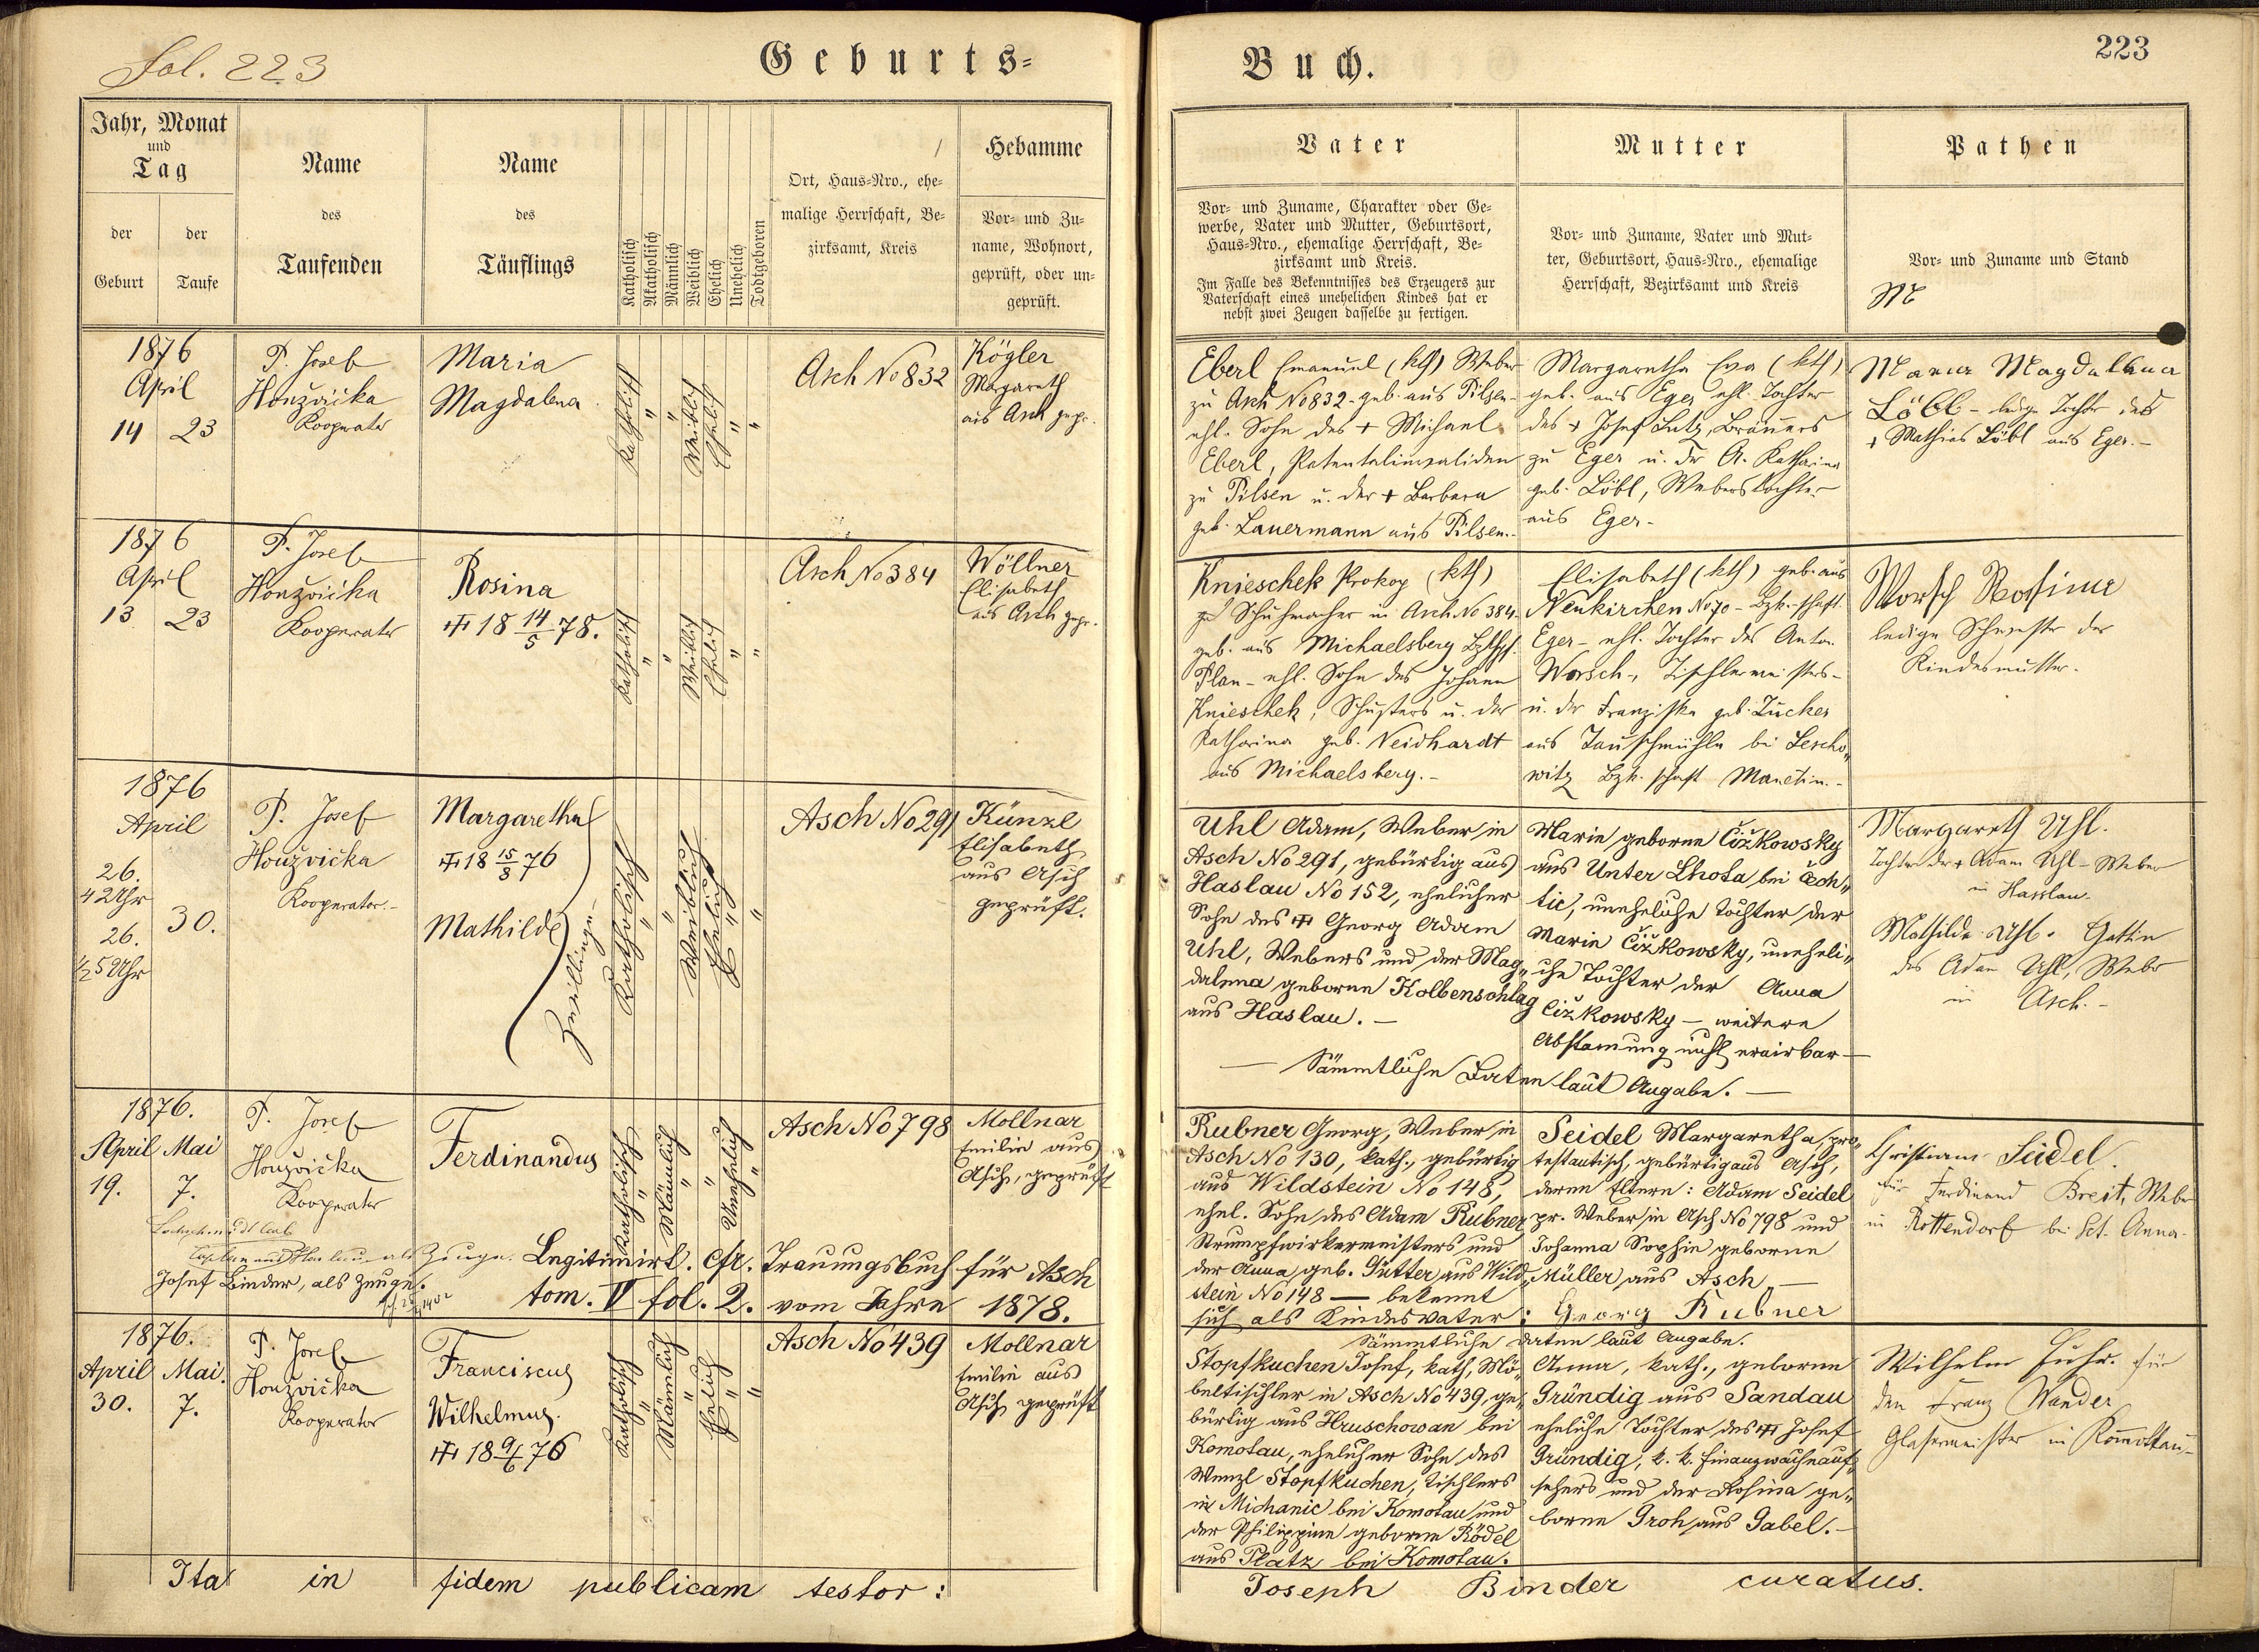 Fol. 223
Geburts-
Buch.
223
Jahr, Monat
und
Tag
der
Geburt
der
Taufe
Name
des
Taufenden
Name
des
Täuflings
Katholisch
Akatholisch
Männlich
Weiblich
Ehelich
Unehelich
Todtgeboren
Ort, Haus-Nro., ehe-
malige Herrschaft, Be-
zirksamt, Kreis
Hebamme
Vor- und Zu-
name, Wohnort,
geprüft, oder un-
geprüft.
Vater
Vor- und Zuname, Charakter oder Ge-
werbe, Vater und Mutter, Geburtsort,
Haus-Nro., ehemalige Herrschaft, Be-
zirksamt und Kreis.
Im Falle des Bekenntnisses des Erzeugers zur
Vaterschaft eines unehelichen Kindes hat er
nebst zwei Zeugen dasselbe zu fertigen.
Mutter
Vor- und Zuname, Vater und Mut-
ter, Geburtsort, Haus-Nro., ehemalige
Herrschaft, Bezirksamt und Kreis
Pathen
Vor- und Zuname und Stand
1876
April
14 23
P. Josef
Honzvička
Kooperator
Maria
Magdalena
Katholisch
"
"
Weiblich
Ehelich
"
"
Asch No 832
Kögler
Margareth
aus Asch gepr.
Eberl Emanuel (kth) Weber
zu Asch No 832 - geb. aus Pilsen -
ehl. Sohn des + Michael
Eberl, Patentalinvaliden
zu Pilsen u. der + Barbara
geb. Lauermann aus Pilsen.-
Margaretha Eva (kth)
geb. aus Eger ehl. Tochter
des + Josef Lutz, Bräuers
zu Eger u. der A. Katharina
geb. Löbl, Weberstochter
aus Eger-
Maria Magdalena
Löbl - ledige Tochter des
+ Mathias Löbl aus Eger.-
1876
April
13 23
P. Josef
Honzvička
Kooperator
Rosina
✝ 18 14/5 78.
Katholisch
"
"
Weiblich
Ehelich
"
"
Asch No 384
Wöllner
Elisabeth
aus Asch gepr.
Knieschek Prokop (kth)
Schuhmacher in Asch No 384
geb. aus Michaelsberg
Plan - ehl. Sohn des Johann
Knieschek, Schusters u. der
Katharina geb. Neidhardt
aus Michaelsberg.-
Elisabeth (kth) geb. aus
Neukirchen No 70 - Bzh.-schaft
Eger - ehl. Tochter des Anton
Worsch-, Tischlermeisters-
u. der Franziska geb. Zucker
aus Tauschmühle bei Lescho„
witz Bzh.schaft Manetin.-
Worsch Rosina
ledige Schwester der
Kindesmutter.
1876
April
26.
4 Uhr
26.
½5 Uhr
30.
P. Josef
Honzvička
Kooperator-
Margaretha
✝ 18 15/8 76
Mathilde
Zwillinge
Katholisch
"
"
Weiblich
Ehelich
"
"
Asch No 291
Künzl
Elisabeth
aus Asch
geprüft.
Uhl Adam, Weber in
Asch No 291, gebürtig aus
Haslau No 152, ehelicher
Sohn des ✝ Georg Adam
Uhl, Webers und der Mag„
dalena geborne Kolbenschlag
aus Haslau.-
Marie geborne Čižkowsky
aus Unter Lhota bei Čech„
tic, uneheliche Tochter der
Marie Čižkowsky, uneheli„
che Tochter der Anna
Čižkowsky - weitere
Abstamung nicht eruirbar-
- Sämmtliche Daten laut Angabe. -
Margareth Uhl.
Tochter des + Adam Uhl - Weber
in Hasslau.
Mathilde Uhl. Gattin
des Adam Uhl, Weber
in Asch.-
1876.
April Mai
19. 7.
P. Josef
Honzvička
Kooperator
Ferdinandus
Katholisch
"
Männlich
"
"
Unehelich
"
Asch No 798
Mollnar
Emilie aus
Asch, geprüft
als Zeuge.
Josef Binder, als Zeuge.
Legitimirt. cfr. Trauungsbuch für Asch
tom. V fol. 2. vom Jahre 1878.
Rubner Georg, Weber in
Asch No 130, kath., gebürtig
aus Wildstein No 148,
ehel. Sohn des Adam Rubner
Strumpfwirkermeisters und
der Anna, geb. Gütter aus Wild„
stein No 148 - bekennt
sich als Kindesvater: Georg Rubner
Seidel Margaretha, pro„
testantisch, gebürtig aus Asch,
deren Eltern: Adam Seidel
pr. Weber in Asch No 798 und
Johanna Sophie geborne
Müller aus Asch -
Sämmtliche Daten laut Angabe.
Christiane Seidel.
für Ferdinand Breit, Weber
in Rottendorf bei Sct. Anna.
1876.
April Mai.
30. 7.
P. Josef
Honzvička
Kooperator
Franciscus
Wilhelmus.
✝ 18 9/6 76
Katholisch
"
Männlich
"
Ehelich
"
"
Asch No 439
Mollnar
Emilie aus
Asch geprüft
Stopfkuchen Josef, kath, Mö„
beltischler in Asch No 439, ge„
bürtig aus Hruschowan bei
Komotau, ehelicher Sohn des
Wenzl Stopfkuchen, Tischlers
in Michanic bei Komotau und
der Philippine geborne Rödel
aus Platz bei Komotau.
Anna, kath., geborne
Gründig aus Sandau
eheliche Tochter des ✝ Josef
Gründig, k. k. Finanzwachauf„
sehers und der Rosina ge„
borne Groh aus Gabel.-
Wilhelm Fuhr. für
den Franz Wander
Glasermeister in Komottau-
Ita in fidem publicam testor:
Joseph Binder curatus.